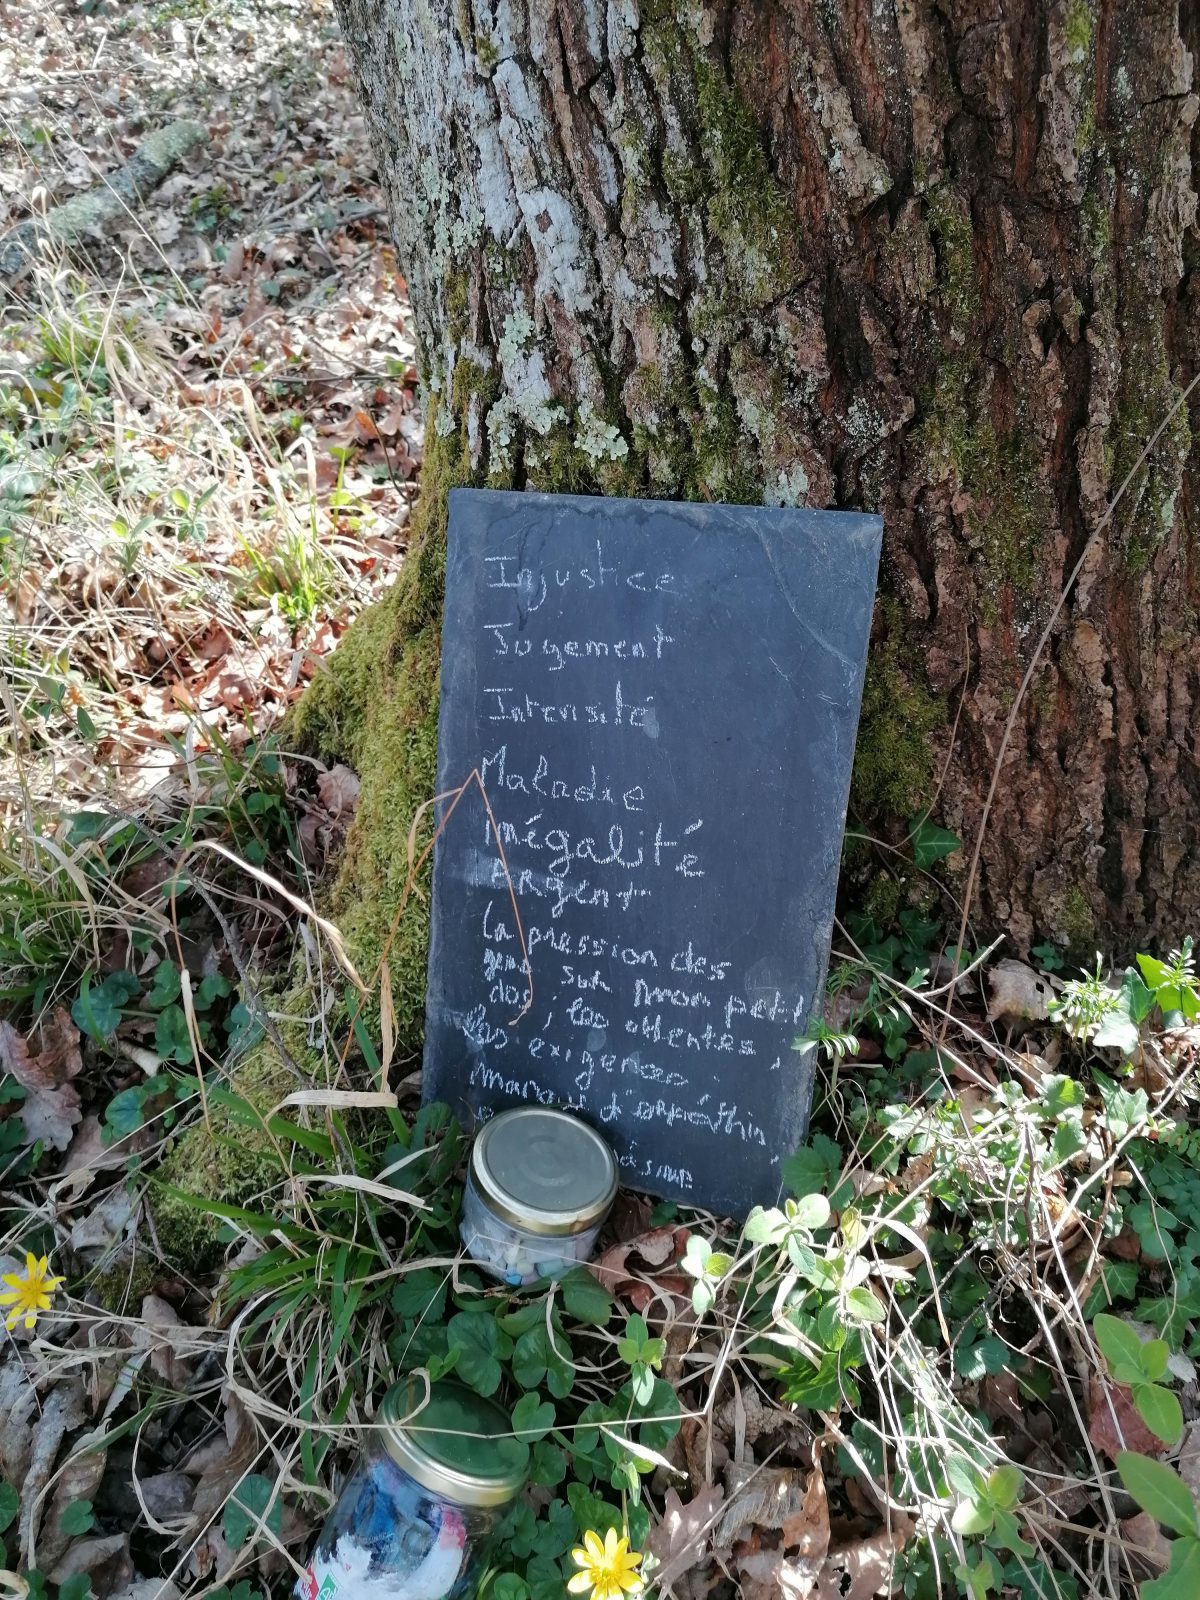 Injustice
Jugement
Intensité
Maladie
inégalité
Argent
la pression des
gens sur mon petit
dos ; les attentes ;
les exigences.
manque d'empathie